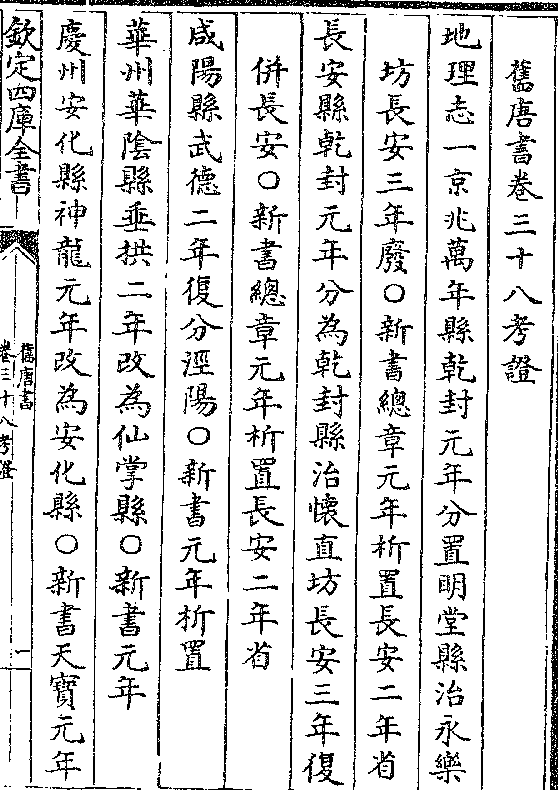 舊唐書卷三十八考證
地理志一京兆萬年縣乾封元年分置明堂縣治永樂
坊長安三年廢○新書總章元年析置長安二年省
長安縣乾封元年分為乾封縣治懷直坊長安三年復
併長安○新書總章元年析置長安二年省
咸陽縣武德二年復分涇陽○新書元年析置
華州華陰縣垂拱二年改為仙掌縣○新書元年
慶州安化縣神龍元年改為安化縣○新書天寶元年
欽定四庫全書
舊唐書
卷三十八考證
一